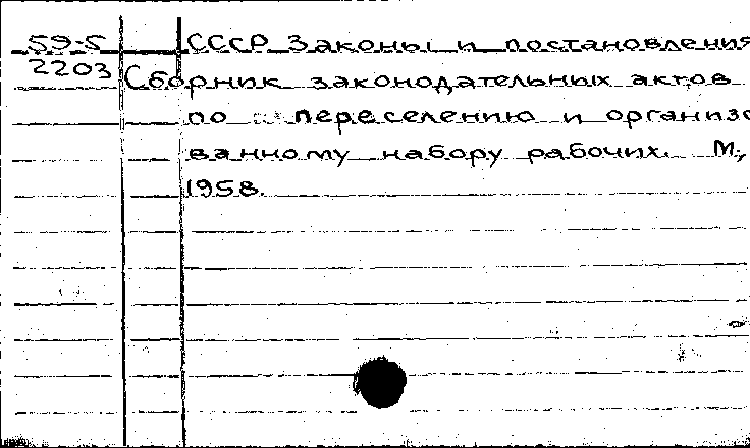 59-5 СССР Законы и постановления
2203 Сборник законодательных актов
по переселению и организо
ванному набору рабочих. М.,
1958.